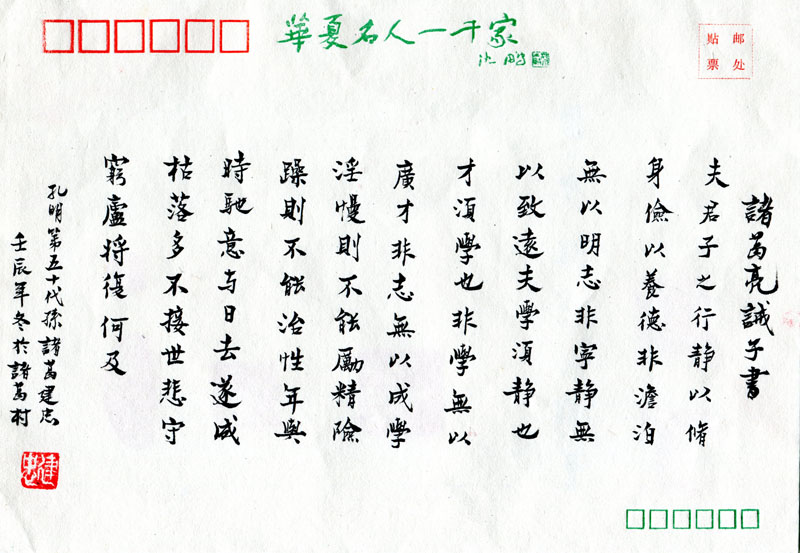 華夏名人一千家
沈鹏
贴邮
票处
諸葛亮誡子書
夫君子之行静以脩
身儉以養德非澹泊
無以明志非寧静無
以致遠夫學須静也
才須學也非學無以
廣才非志無以成學
淫慢則不能勵精險
躁則不能治性年與
時馳意与日去遂成
枯落多不接世悲守
窮廬将復何及
孔明第五十代孫諸葛建忠
壬辰年冬於諸葛村
建忠